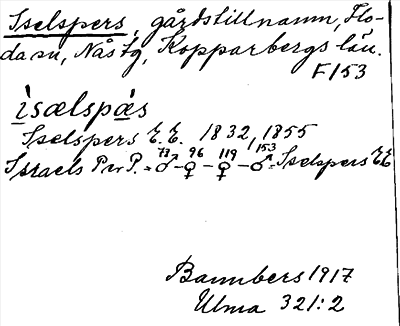 Iselspers, gårdstillnamn, Flo-
da sn, Nås tg, Kopparbergs län.
F153
ìsælspæ̀s
Iselspers E.E. 1832, 1855
Israels Per P. = ♂73 – ♀96 – ♀119 – ♂153 = Iselspers EE
Bannbers 1917
Ulma 321:2